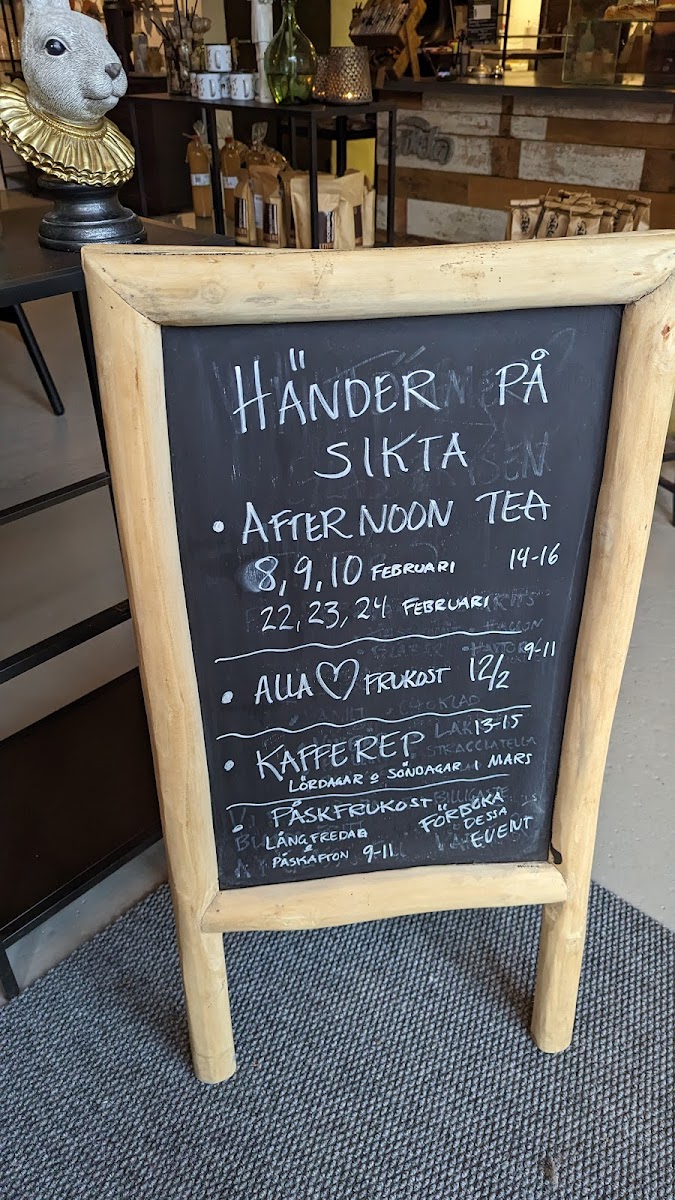 HÄNDER PÅ
SIKTA
• AFTERNOON TEA
8, 9, 10 FEBRUARI 14-16
22, 23, 24 FEBRUARI
• ALLA ♡ FRUKOST 12/2 9-11
• KAFFEREP 13-15
LÖRDAGAR & SÖNDAGAR I MARS
• PÅSKFRUKOST
LÅNGFREDAG
&
PÅSKAFTON 9-11
FÖRBOKA
DESSA
EVENT